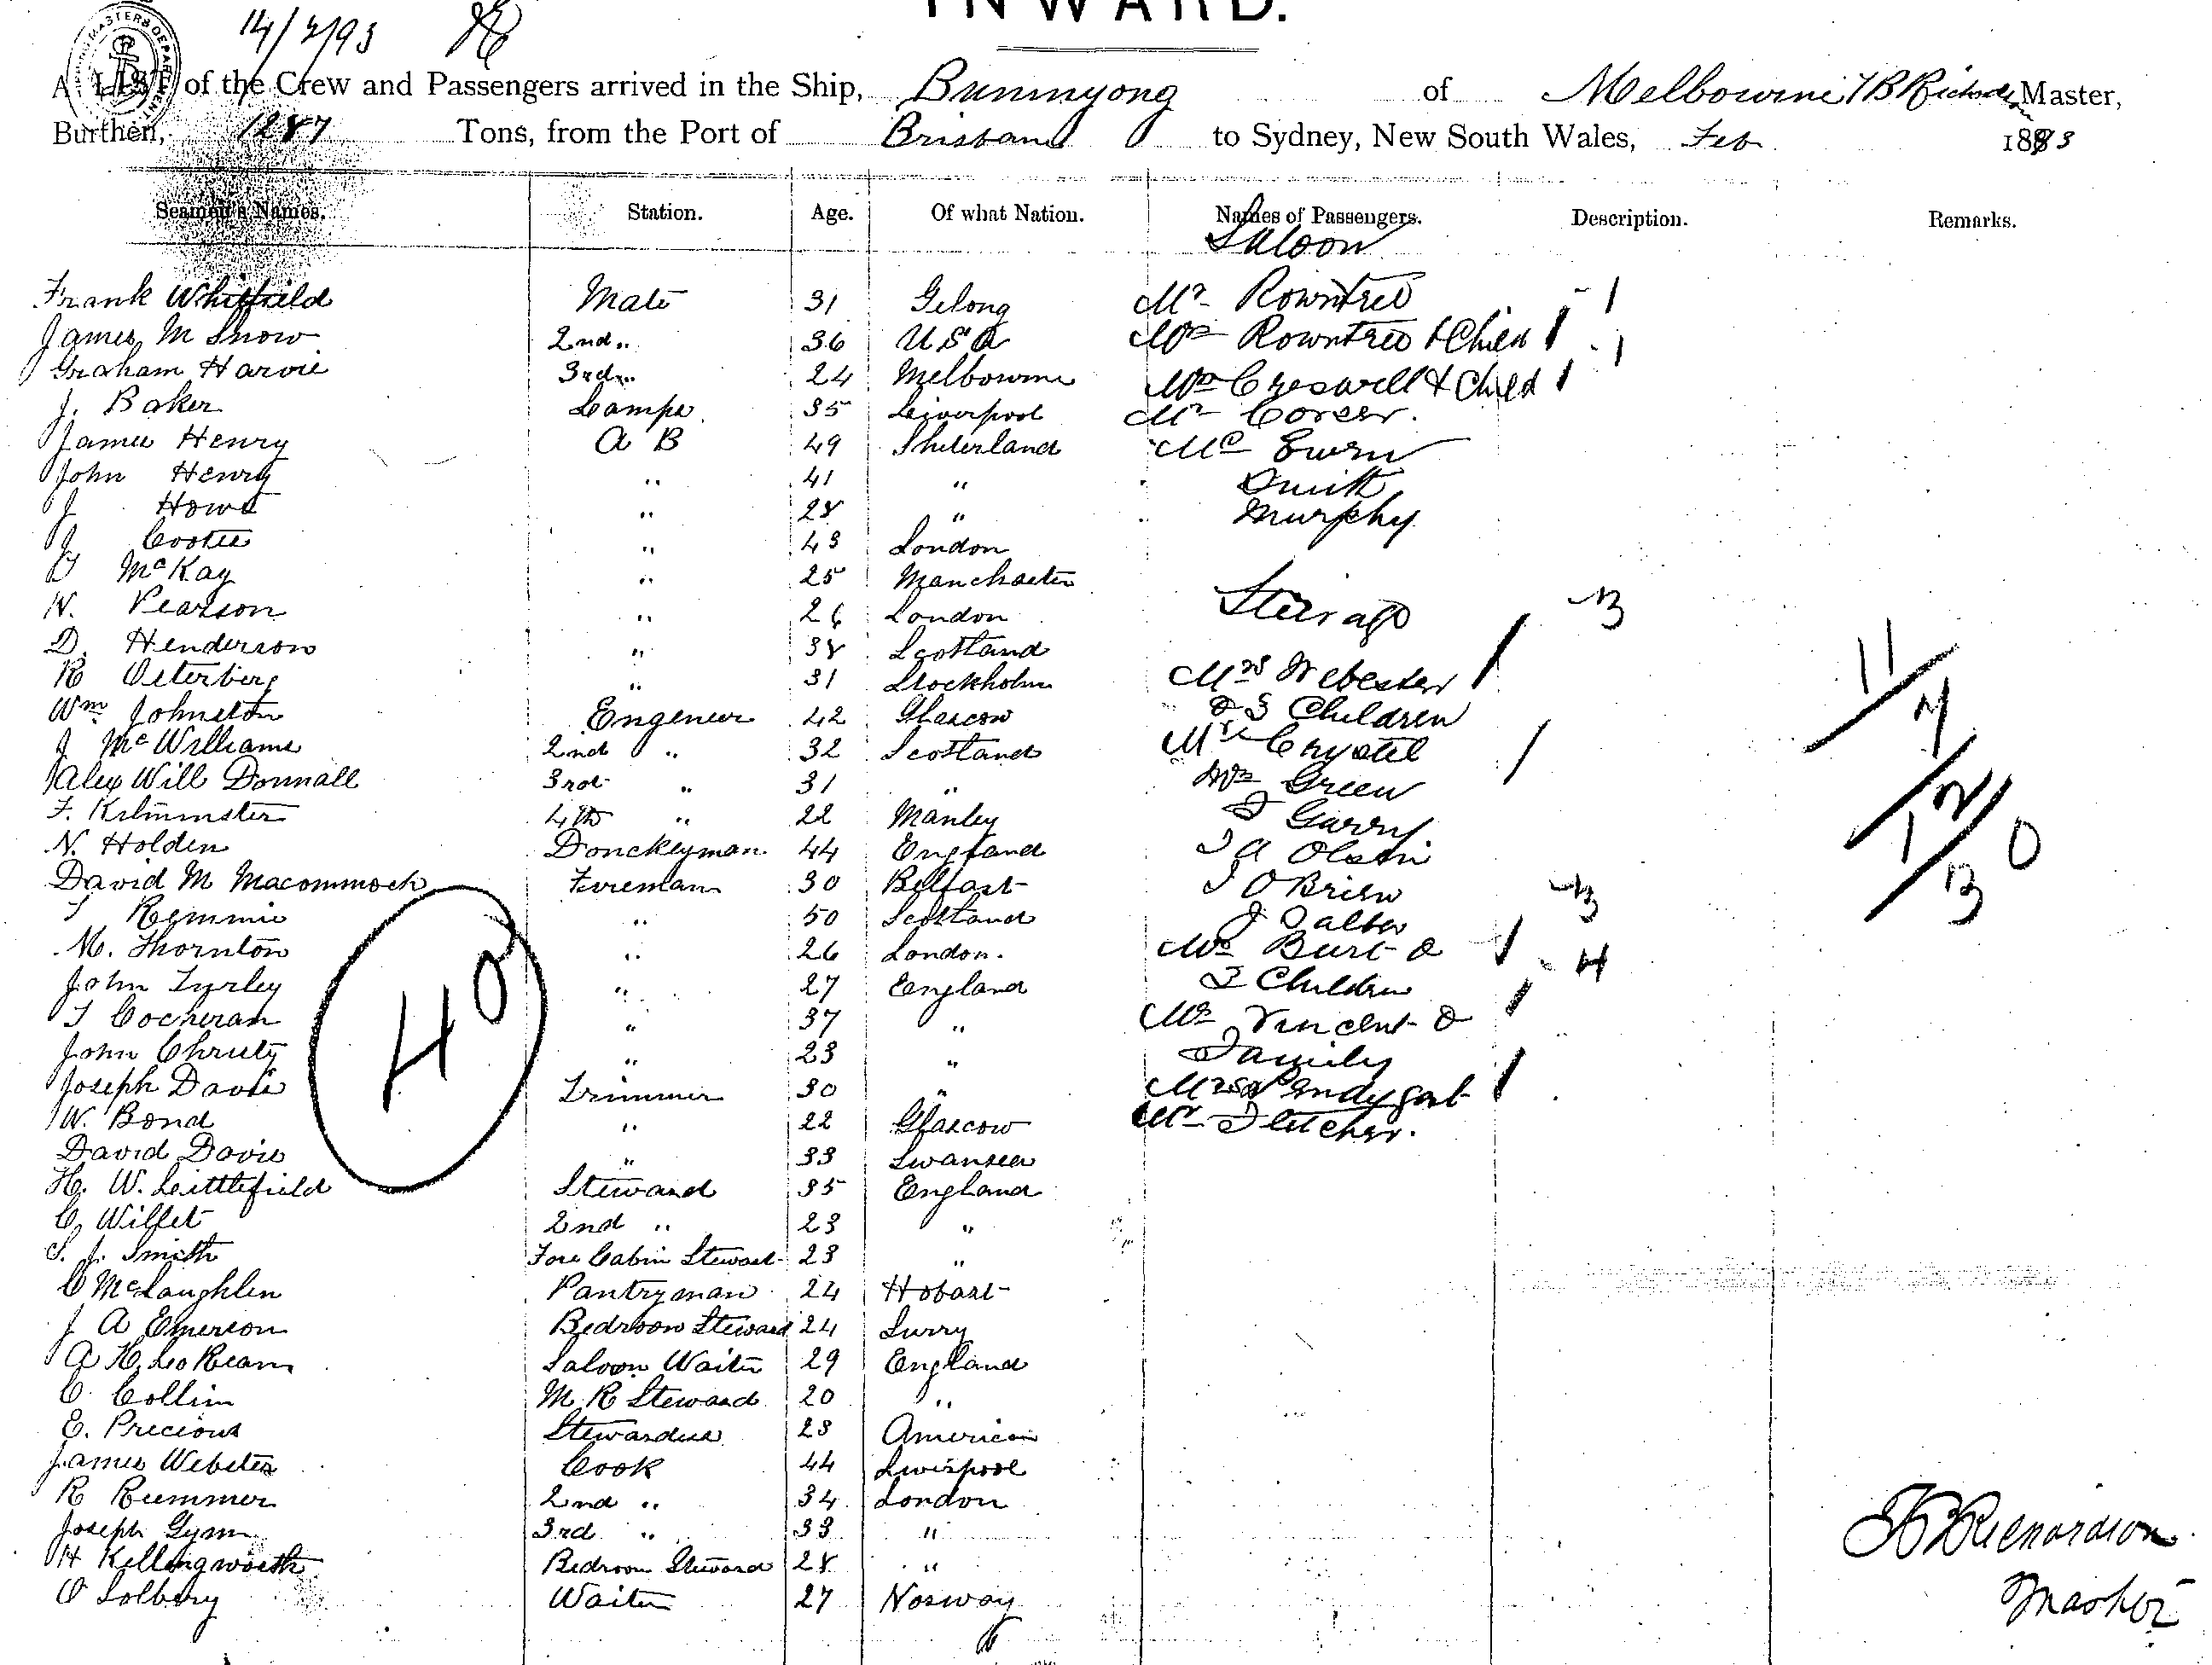 INWARD.
14/2/93
A LIST of the Crew and Passengers arrived in the Ship, Buninyong of Melbourne, T B Richardson Master,
Burthen, 1287 Tons, from the Port of Brisbane to Sydney, New South Wales, Feb 1893
Seamen's Names. Station. Age. Of what Nation. Names of Passengers. Description. Remarks.
Saloon
Frank Whitfield Mate 31 Gelong Mr Rowntree 1
James M Snow 2nd " 36 U S A Mrs Rowntree & Child 1 1
Graham Harvie 3rd " 24 Melbourne Mrs Creswell & Child 1
J. Baker Lamps 35 Liverpool Mr Corser.
James Henry A B 49 Sheterland Mc Ewen
John Henry " 41 " Smith
J Howe " 28 " Murphy
J Cootes " 43 London
D McKay " 25 Manchaster
W. Pearson " 26 London Steirage 3
D. Henderson " 38 Scotland
R Osterberg " 31 Stockholm Mrs Webester
Wm Johnston Engeneer 42 Glascow & 3 Children
J McWilliams 2nd " 32 Scotland Mr Crystel
Alex Will Donnall 3rd " 31 " Mrs Green
F. Kilminster 4th " 22 Manley Garry
N. Holden Donckeyman 44 England J A Olsen
David M Macommock Fireman 30 Belfast J O Brien
Remmie " 50 Scotland J Salter 3
M. Thornton " 26 London. Mrs Burt & 4
John Tyrley " 27 England 3 Children
T Cocheran " 37 " Mrs Vincent &
John Christy " 23 " Family
Joseph Davis Trimmer 30 " Mrs Pendygast
W. Bond " 22 Glascow Mr Fletcher.
David Davis " 33 Swansea
H. W. Littlefield Steward 35 England
C. Willet 2nd " 23 "
S. J. Smith Fore Cabin Steward 23 "
C McLaughlen Pantryman 24 Hobart
J A Emerson Bedroom Steward 24 Surry
A H Saloon Waiter 29 England
C. Collins M. R Steward 20 "
E. Precious Stewardess 28 American
James Webster Cook 44 Liverpool
R Rummer 2nd " 34 London
Joseph Gynn 3rd " 33 "
H Killingworth Bedroom Steward 28 "
O Solberg Waiter 27 Norway
40
11
4
12
13
0
T B Richardson
Master